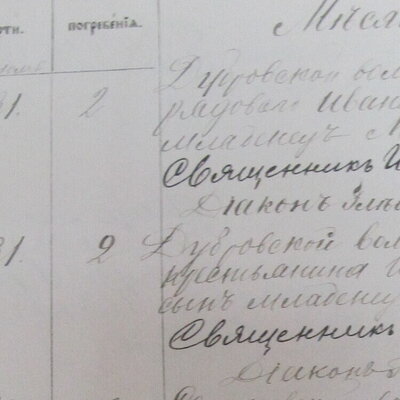 рти. погребенія. Мѣся
31. 2 Дубровской вол
рядоваго Иван
младенец М
Священникъ И
Діаконъ
31. 2 Дубровской вол
крестьянина И
сынъ младенец
Священникъ
Діаконъ